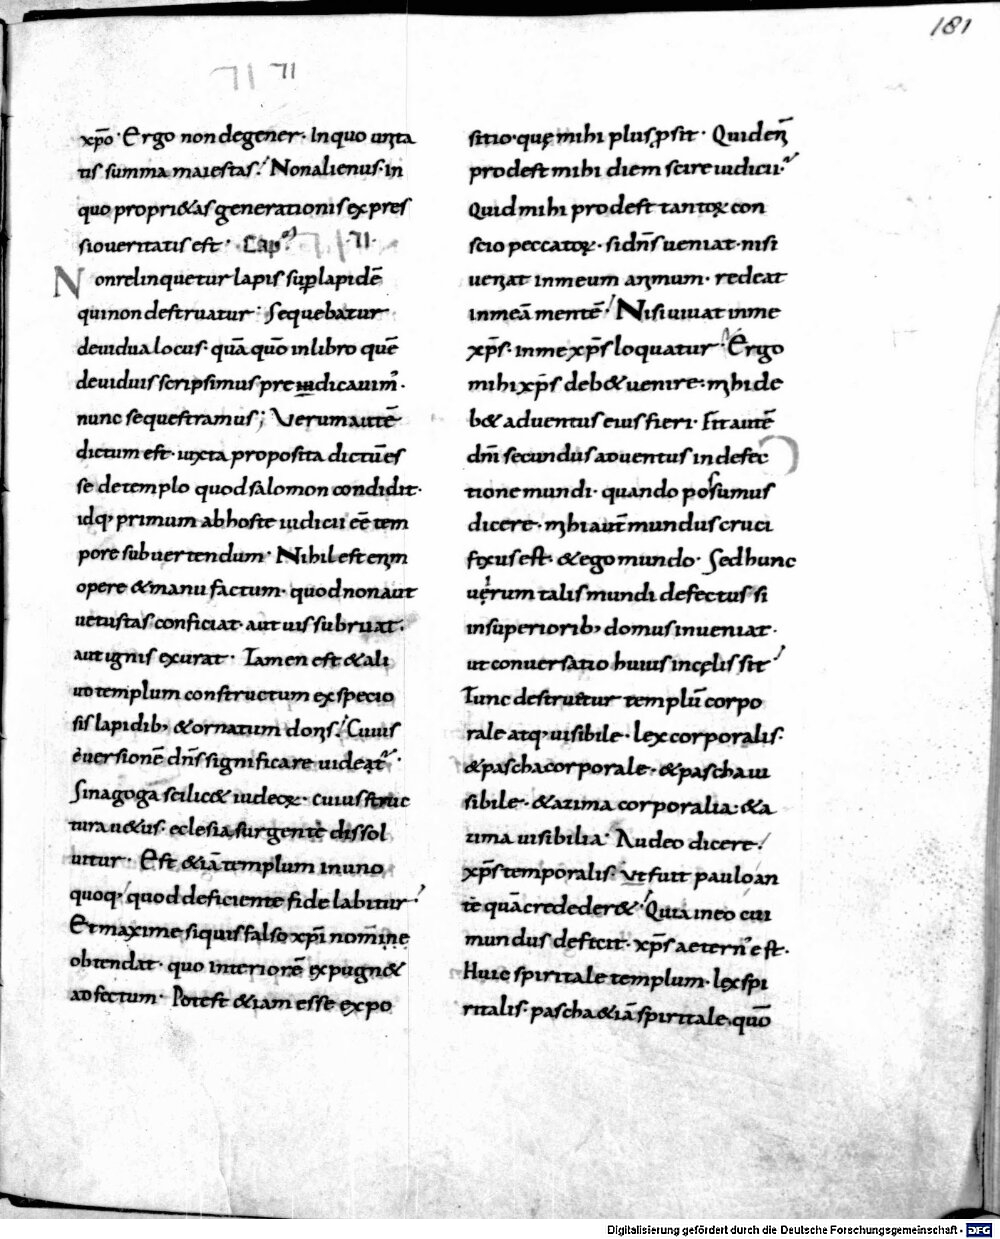 181
71 71
xp̄o · Ergo non degener · In quo uirta
tis summa maiestas · Non alienus · in
quo propri&as generationis expres
sio ueritatis est · Cap 71 ·
Non relinquetur lapis sup lapidē
qui non destruatur · Sequebatur
deuidua locus · quā quō in libro quē
deuiduis scripsimus pre iudicauim᾽ ·
nunc sequestramus ; Verum autē
dictum est · iuxta proposita dictū es
se de templo quod salomon condidit ·
idq; primum ab hoste iudicii eē tem
pore subuertendum · Nihil est enim
opere & manu factum · quod non aut
uetustas conficiat · aut uis subruat ·
aut ignis exurat · Tamen est & ali
ud templum constructum ex specio
sis lapidib; & ornatum donis · Cuius
euersionē dn̄s significare uideat᾽ ·
Sinagoga scilic& iudeoꝝ · cuius struc
tura u&us · eclesia surgente dissol
uitur · Est & iā templum in uno
quoq; quod deficiente fide labitur
Et maxime siquis falso xp̄i nomine
obtendat · quo interiorē expugn&
adfectum · Potest & iam esse expo
sitio · quę mihi plus ꝓsit · Quid enī
prodest mihi diem scire iudicii ·
Quid mihi prodest tantoꝝ con
scio peccatoꝝ · si dn̄s ueniat · nisi
ueniat in meum animum · redeat
in meā mentē · Nisi uiuat in me
xp̄s · in me xp̄s loquatur · Ergo
mihi xp̄s deb& uenire · mihi de
b& aduentus eius fieri · Fit autē
dn̄i secundus aduentus in defec
tione mundi · quando possumus
dicere · mihi autē mundus cruci
fixus est · & ego mundo · Sed hunc
uerum talis mundi defectus si
in superiorib; domus inueniat ·
ut conuersatio huius in cęlis sit
Tunc destruitur templū corpo
rale atq; uisibile · lex corporalis ·
& pascha corporale · & pascha ui
sibile · & azima corporalia · & a
zima uisibilia · Audeo dicere ·
xp̄s temporalis · ut fuit paulo an
te quā crederer& · Quia in eo cui
mundus deficit · xp̄s aetern᾽ est ·
Huic spiritale templum · lex spi
ritalis · pascha & iā spiritale, quō
Digitalisierung gefördert durch die Deutsche Forschungsgemeinschaft - DFG